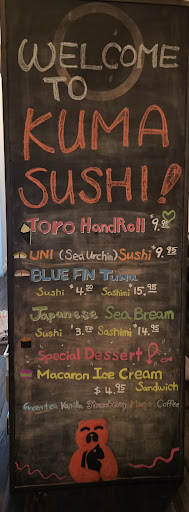 WELCOME
TO
KUMA
SUSHI!
Toro HandRoll $9.
UNI (Sea Urchin) Sushi $9.95
BLUE FIN Tuna
Sushi $4.50 Sashimi $15.95
Japanese Sea Bream
Sushi $3.50 Sashimi $14.95
Special Dessert
Macaron Ice Cream
$4.95 Sandwich
Green tea Vanilla Strawberry Mango Coffee